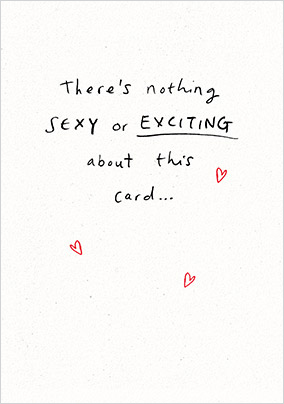 There's nothing
SEXY or EXCITING
about this
card...